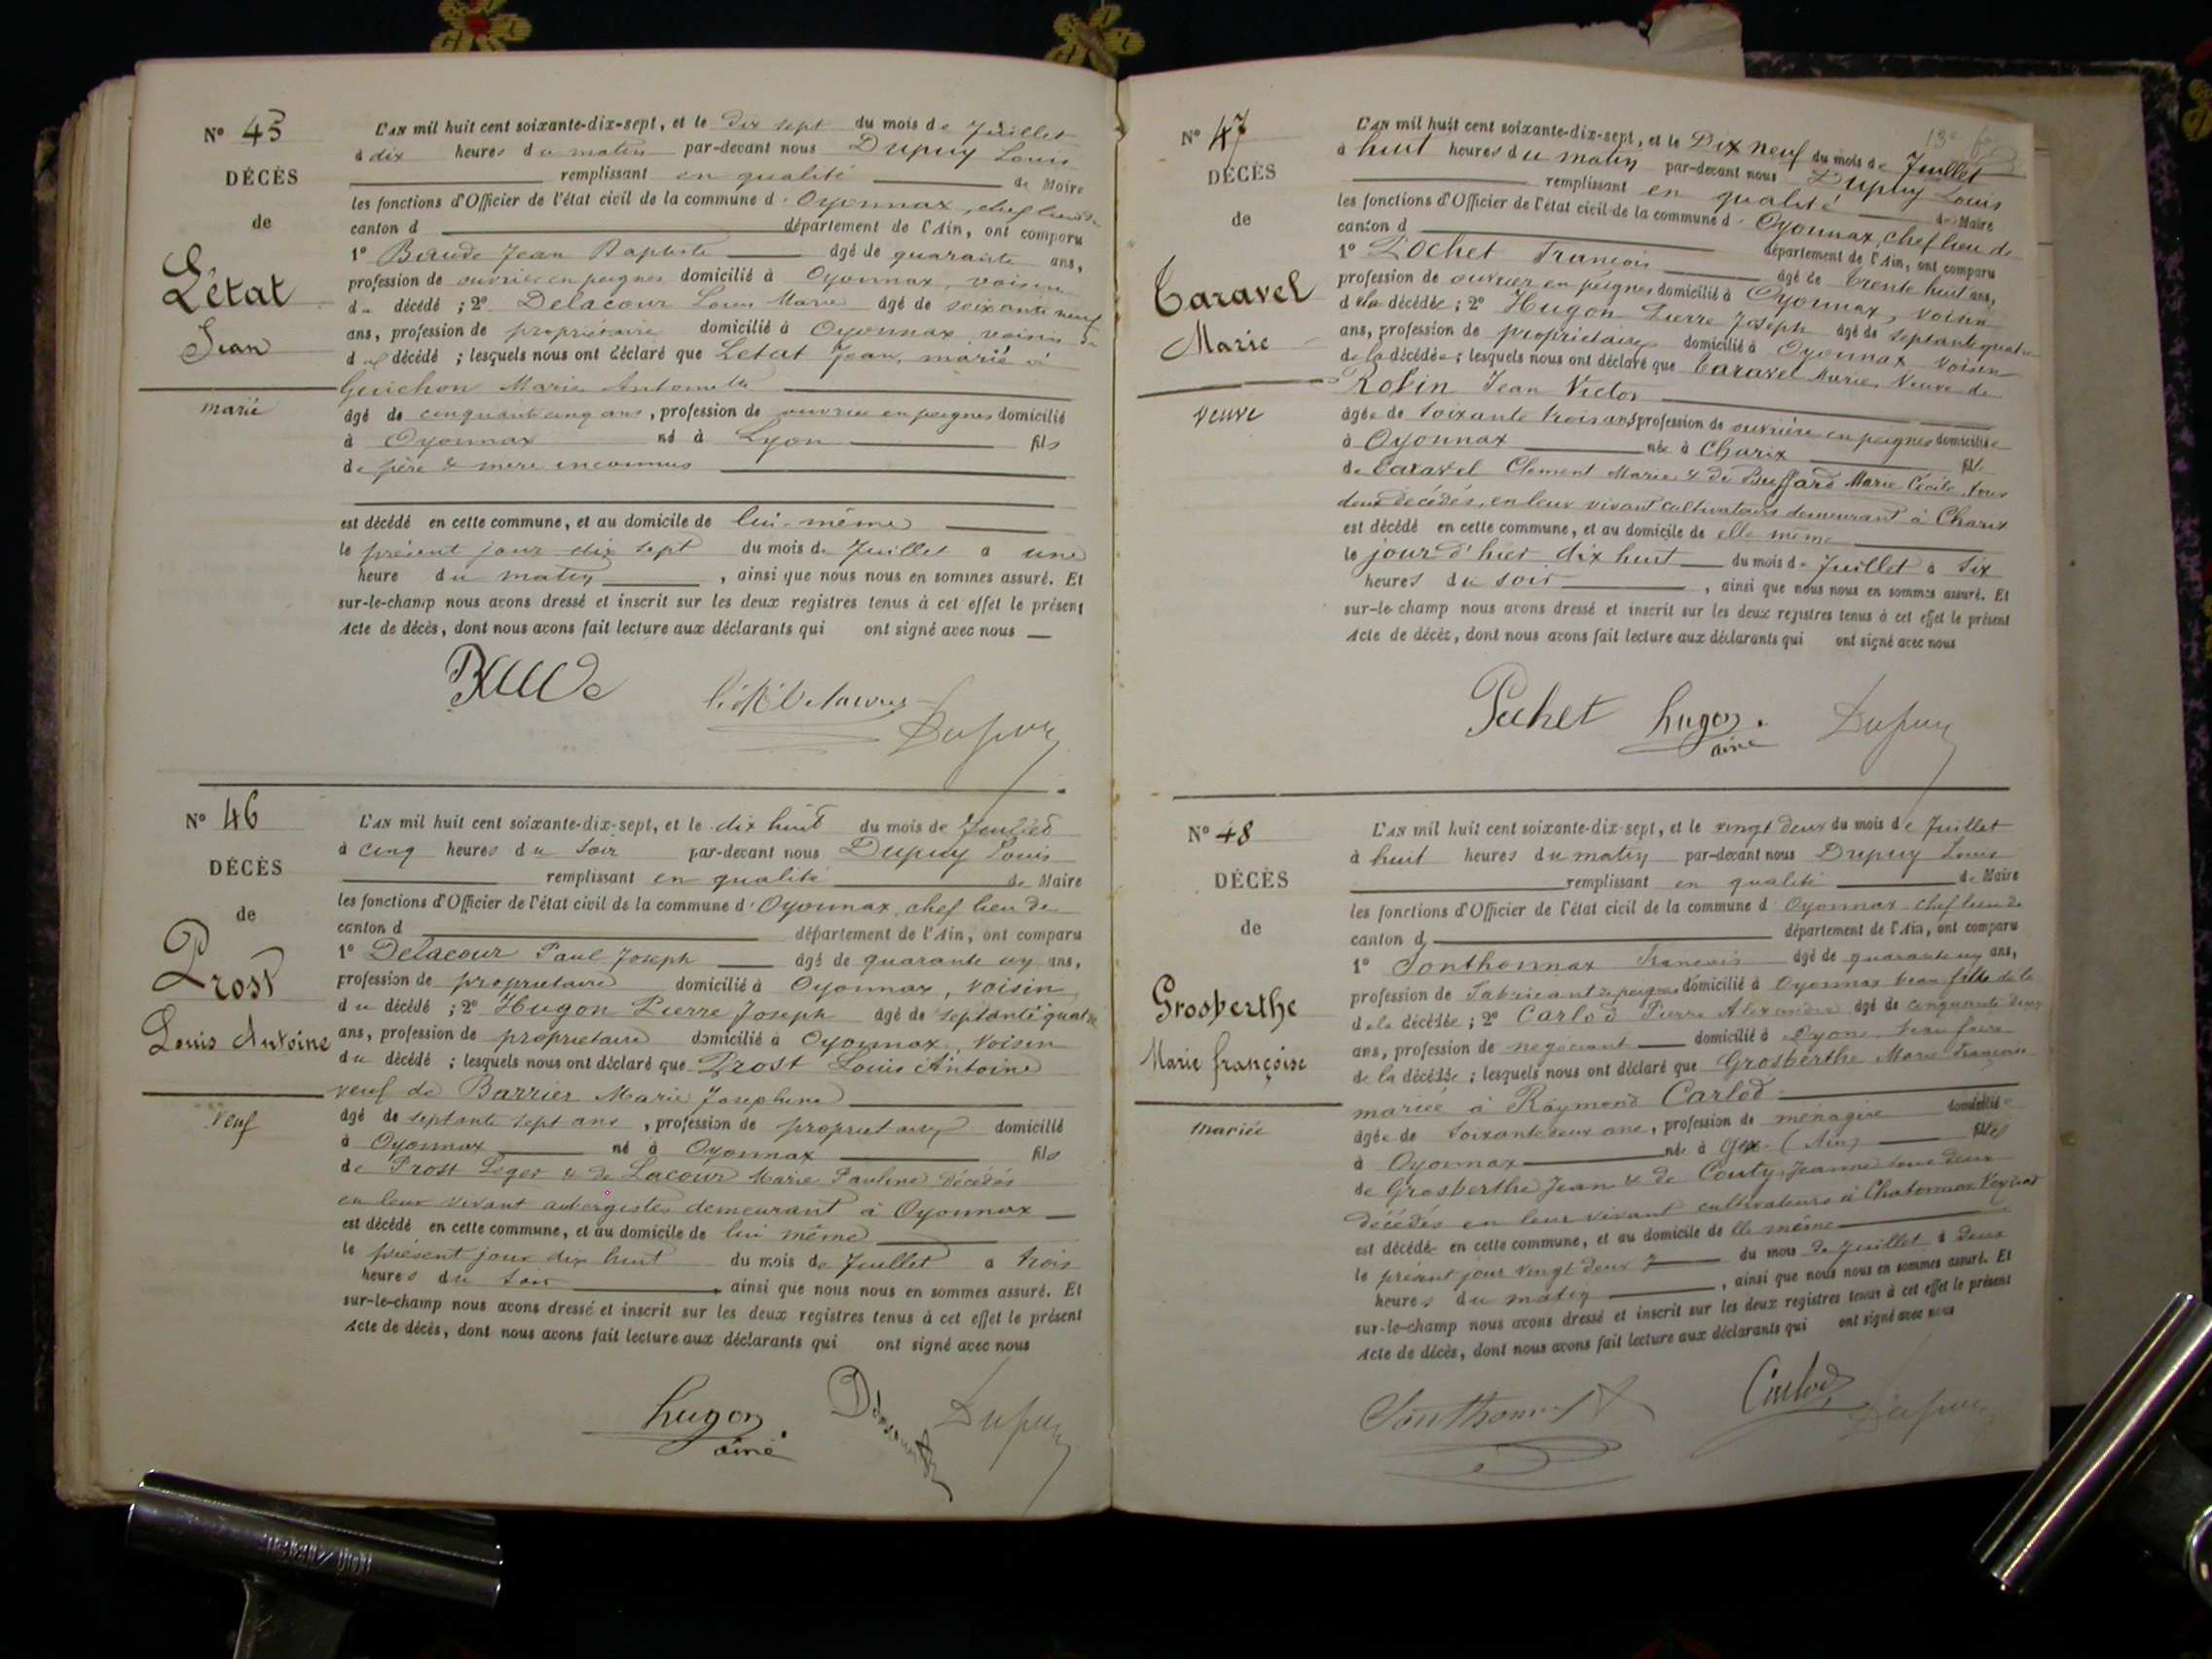 N° 45
DÉCÈS
de
Létat
Jean
marié
L'AN mil huit cent soixante-dix-sept, et le dix sept du mois de Juillet
à dix heures du matin par-devant nous Dupuy Louis
remplissant en qualité de Maire
les fonctions d'Officier de l'état civil de la commune d'Oyonnax, chef lieu de
canton d département de l'Ain, ont comparu
1° Baude Jean Baptiste âgé de quarante ans,
profession de ouvrier en peignes domicilié à Oyonnax, voisin
du décédé ; 2° Delacour Louis Marie âgé de soixante neuf
ans, profession de propriétaire domicilié à Oyonnax voisin
du décédé ; lesquels nous ont déclaré que Letat Jean, marié à
Guichon Marie Antoinette
âgé de cinquante cinq ans, profession de ouvrier en peignes domicilié
à Oyonnax né à Lyon fils
de père & mère inconnus
est décédé en cette commune, et au domicile de lui-même
le présent jour dix sept du mois de Juillet à une
heure du matin, ainsi que nous nous en sommes assuré. Et
sur-le-champ nous avons dressé et inscrit sur les deux registres tenus à cet effet le présent
Acte de décès, dont nous avons fait lecture aux déclarants qui ont signé avec nous
Baude
Dupuy
N° 46
DÉCÈS
de
Prost
Louis Antoine
Veuf
L'AN mil huit cent soixante-dix-sept, et le dix huit du mois de Juillet
à cinq heures du soir par-devant nous Dupuy Louis
remplissant en qualité de Maire
les fonctions d'Officier de l'état civil de la commune d'Oyonnax, chef lieu de
canton d département de l'Ain, ont comparu
1° Delacour Paul Joseph âgé de quarante un ans,
profession de propriétaire domicilié à Oyonnax, voisin
du décédé ; 2° Hugon Pierre Joseph âgé de septante quatre
ans, profession de propriétaire domicilié à Oyonnax, voisin
du décédé ; lesquels nous ont déclaré que Prost Louis Antoine
veuf de Barrier Marie Josephine
âgé de septante sept ans, profession de propriétaire domicilié
à Oyonnax né à Oyonnax fils
de Prost Léger & de Lacour Marie Pauline, décédés
en leur vivant aubergistes demeurant à Oyonnax
est décédé en cette commune, et au domicile de lui même
le présent jour dix huit du mois de Juillet à trois
heures du soir, ainsi que nous nous en sommes assuré. Et
sur-le-champ nous avons dressé et inscrit sur les deux registres tenus à cet effet le présent
Acte de décès, dont nous avons fait lecture aux déclarants qui ont signé avec nous
hugon Dupuy
ainé
N° 47
DÉCÈS
de
Caravel
Marie
veuve
L'AN mil huit cent soixante-dix-sept, et le Dix neuf du mois de Juillet
à huit heures du matin par-devant nous Dupuy Louis
remplissant en qualité de Maire
les fonctions d'Officier de l'état civil de la commune d'Oyonnax, chef lieu de
canton d département de l'Ain, ont comparu
1° Pochet François âgé de trente huit ans,
profession de ouvrier en peignes domicilié à Oyonnax, voisin
de la décédée ; 2° Hugon Pierre Joseph âgé de septante quatre
ans, profession de propriétaire domicilié à Oyonnax voisin
de la décédée ; lesquels nous ont déclaré que Caravel Marie, Veuve de
Robin Jean Victor
âgée de soixante trois ans, profession de ouvrière en peignes domiciliée
à Oyonnax née à Charix fille
de Caravel Clément Marie & de Buffard Marie Cécile, tous
deux décédés, en leur vivant cultivateurs demeurant à Charix
est décédé en cette commune, et au domicile de elle même
le jour d'hier dix huit du mois de Juillet à six
heures du soir, ainsi que nous nous en sommes assuré. Et
sur-le-champ nous avons dressé et inscrit sur les deux registres tenus à cet effet le présent
Acte de décès, dont nous avons fait lecture aux déclarants qui ont signé avec nous
Pochet hugon Dupuy
ainé
N° 48
DÉCÈS
de
Grosberthe
Marie françoise
mariée
L'AN mil huit cent soixante-dix-sept, et le vingt deux du mois de Juillet
à huit heures du matin par-devant nous Dupuy Louis
remplissant en qualité de Maire
les fonctions d'Officier de l'état civil de la commune d Oyonnax chef lieu de
canton d département de l'Ain, ont comparu
1° Sonthonnax François âgé de quarante un ans,
profession de fabricant de peignes domicilié à Oyonnax beau fils de la
de la décédée ; 2° Carlod Pierre Alexandre âgé de cinquante deux
ans, profession de négociant domicilié à Lyon, beau frère
de la décédée ; lesquels nous ont déclaré que Grosberthe Marie Françoise
mariée à Raymond Carlod
âgée de soixante deux ans, profession de ménagère domiciliée
à Oyonnax née à Gex (Ain) fille
de Grosberthe Jean & de Couty Jeanne tous deux
décédés en leur vivant cultivateurs à Chatonnax
est décédée en cette commune, et au domicile de elle même
le présent jour vingt deux du mois de Juillet à deux
heures du matin, ainsi que nous nous en sommes assuré. Et
sur-le-champ nous avons dressé et inscrit sur les deux registres tenus à cet effet le présent
Acte de décès, dont nous avons fait lecture aux déclarants qui ont signé avec nous
Sonthonnax Carlod Dupuy